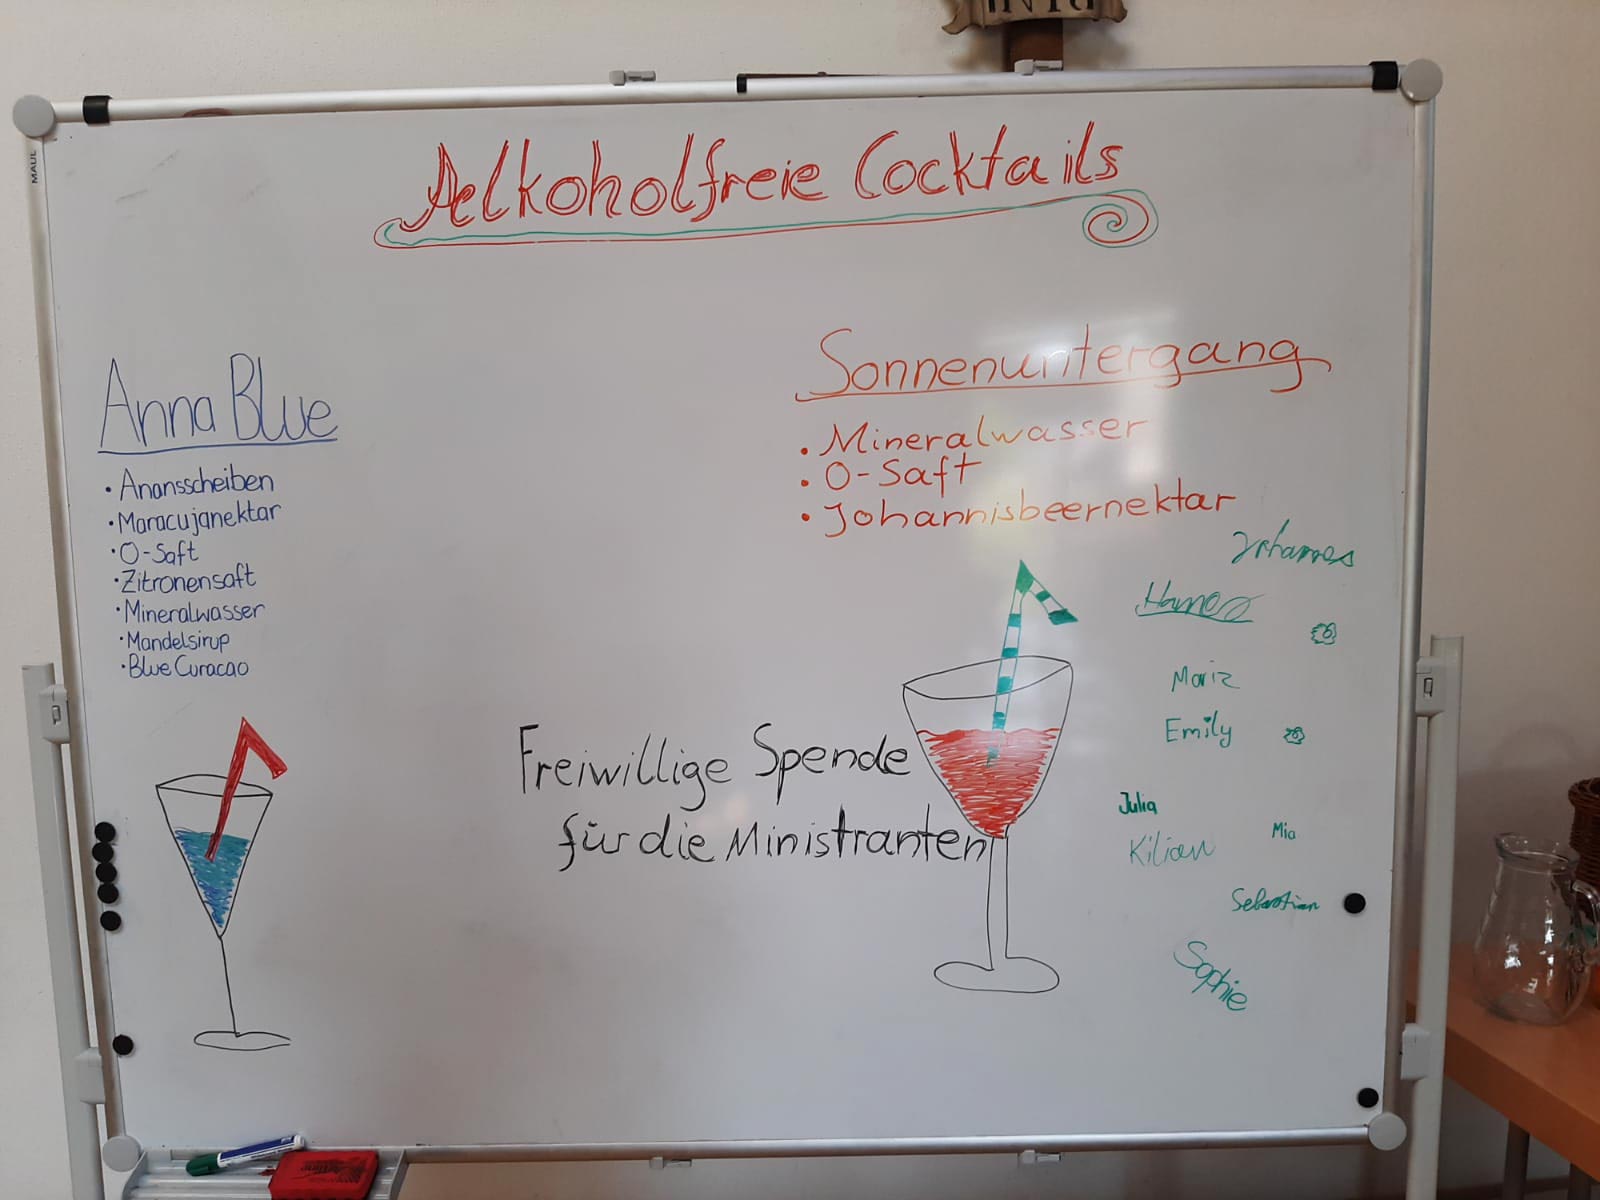 Alkoholfreie Cocktails
Anna Blue
• Anansscheiben
• Maracujanektar
• O-Saft
• Zitronensaft
• Mineralwasser
• Mandelsirup
• Blue Curacao
Sonnenuntergang
• Mineralwasser
• O-Saft
• Johannisbeernektar
Freiwillige Spende
für die Ministranten
Johannes
Emily
Julia
Mia
Kilian
Sebastian
Sophie
MAUL